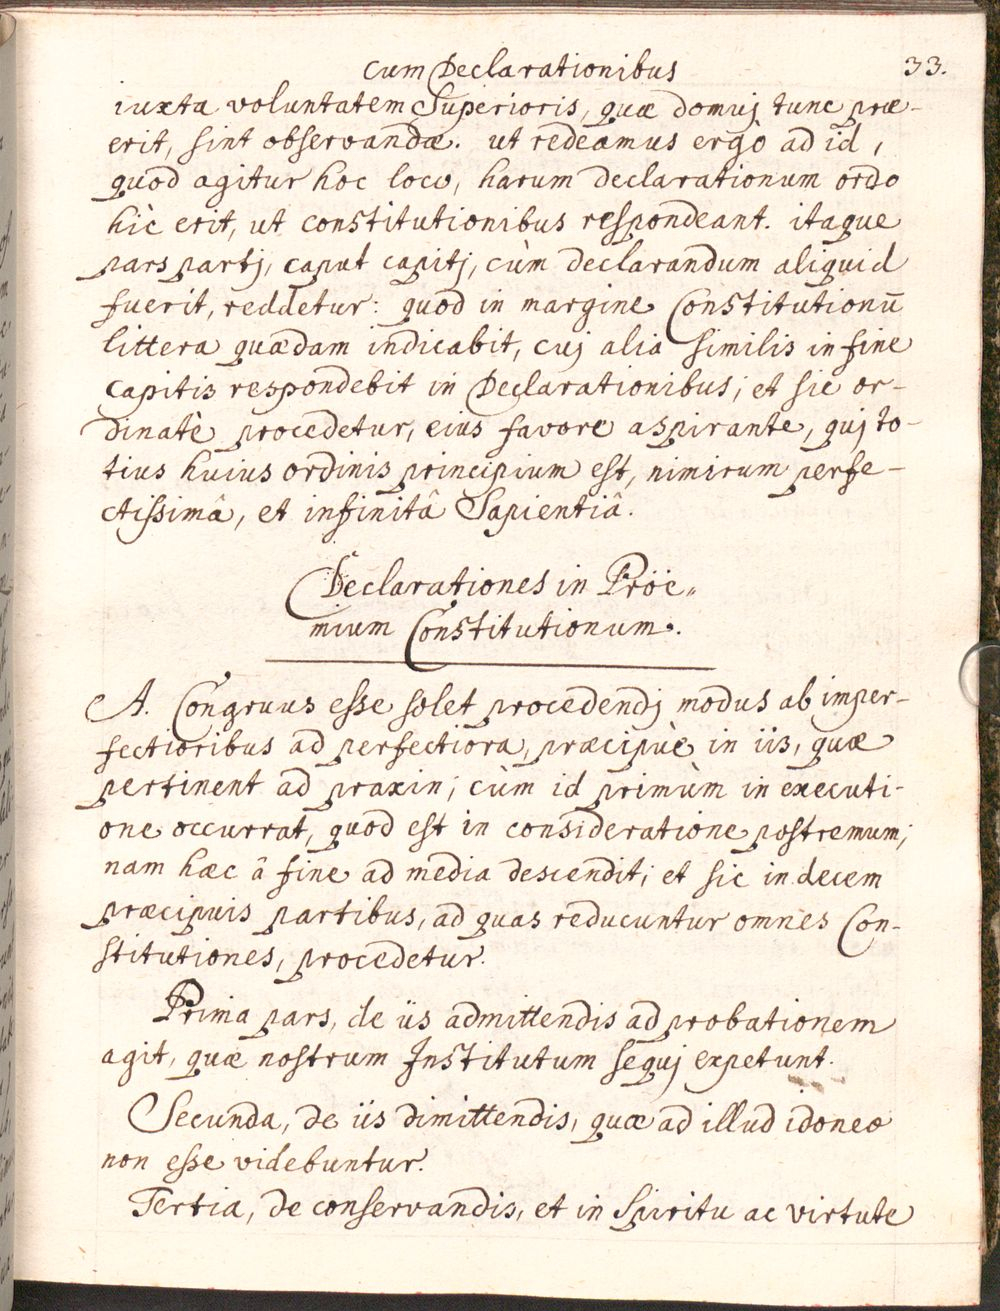 Cum Declarationibus 33.
iuxta voluntatem Superioris, quæ domuj tunc præ-
erit, sint observandæ. ut redeamus ergò ad id,
quod agitur hoc loco, harum declarationum ordo
hìc erit, ut constitutionibus respondeant. itaque
pars partj, caput capitj, cùm declarandum aliquid
fuerit, reddetur: quod in margine Constitutionū
littera quædam indicabit, cuj alia similis in fine
capitis respondebit in Declarationibus; et sic or-
dinatè procedetur, eius favore aspirante, quj to-
tius huius ordinis principium est, nimirum perfe-
ctissimâ, et infinitâ Sapientiâ.
Declarationes in Proë„
mium Constitutionum.
A. Congruus esse solet procedendj modus ab imper-
fectioribus ad perfectiora, præcipuè in iis, quæ
pertinent ad praxin; cùm id primùm in executi-
one occurrat, quod est in consideratione postremum;
nam hæc â fine ad media descendit; et sic in decem
præcipuis partibus, ad quas reducuntur omnes Con-
stitutiones, procedetur.
Prima pars, de iis admittendis ad probationem
agit, quæ nostrum Institutum sequj expetunt.
Secunda, de iis dimittendis, quæ ad illud idoneæ
non esse videbuntur.
Tertia, de conservandis, et in Spiritu ac virtute